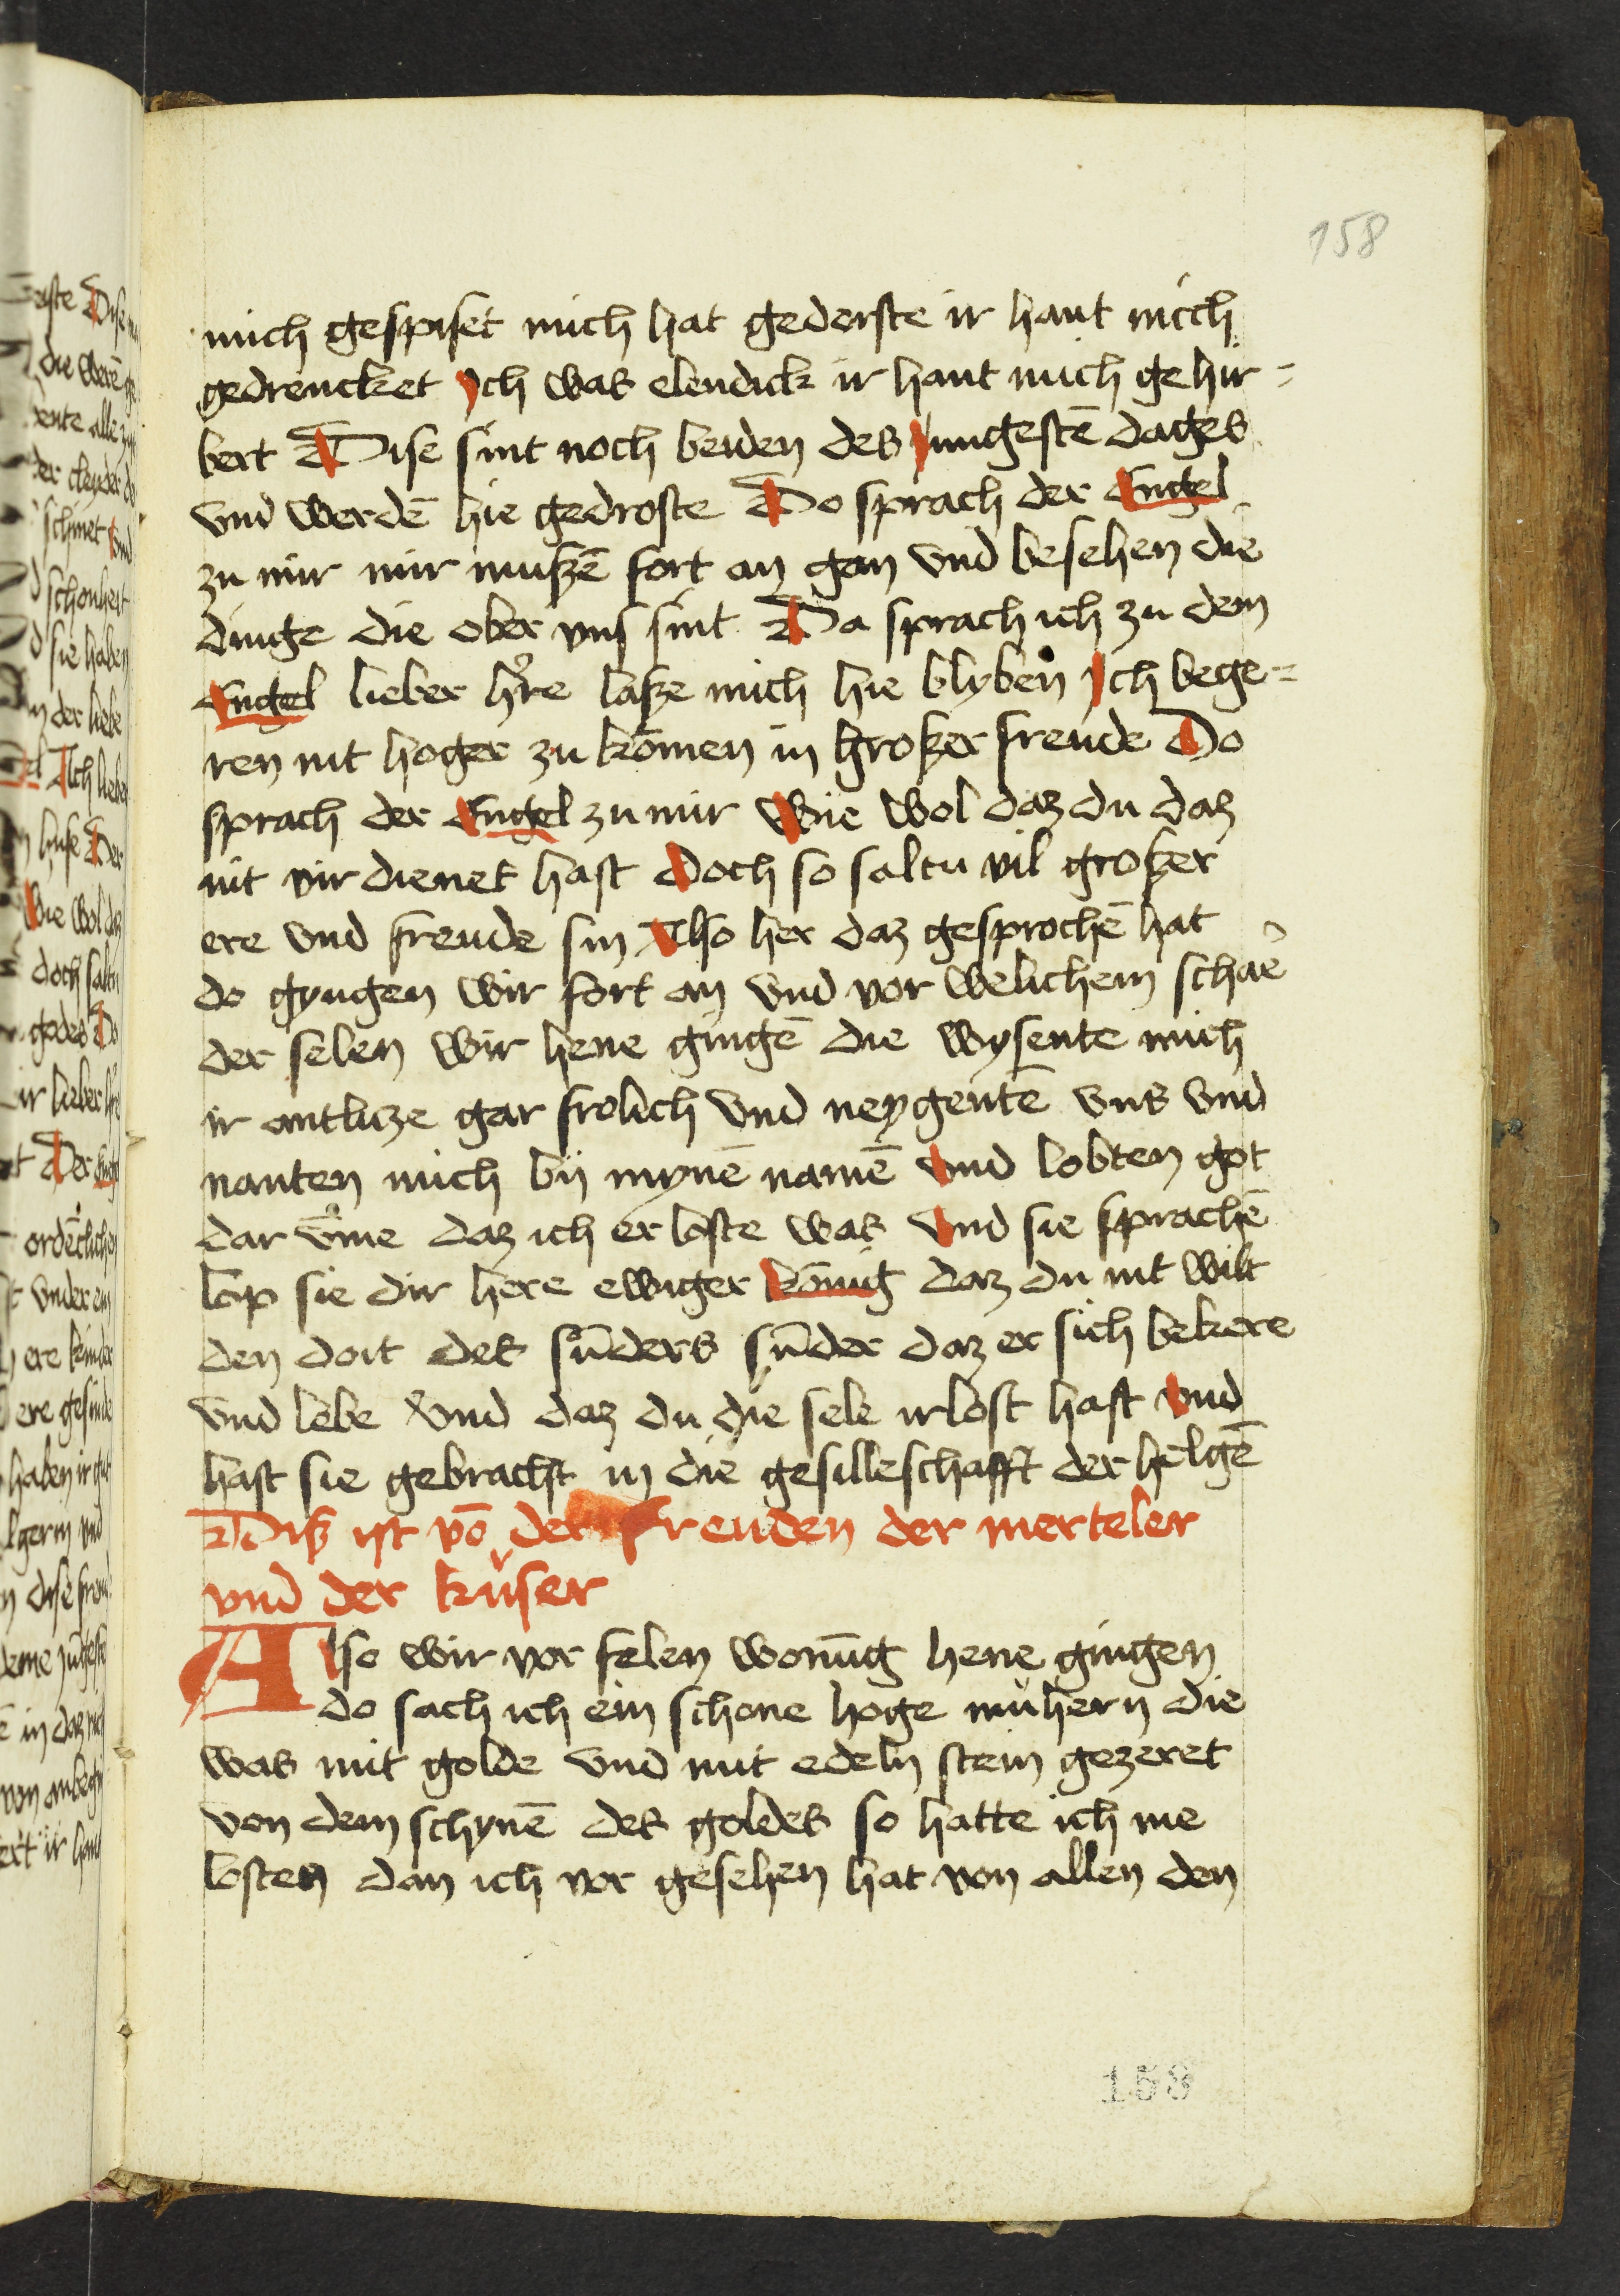 158
mich gespiset mich hat gederste ir hant mich
gedrencket Ich was elendick ir hant mich gehir=
bert Dise sint noch beiden des Iungestē dages
vnd werdē hie gedroste Do sprach der Engel
zu mir mir mußzē fort an gan vnd besehen die
dinge die ober vns sint Da sprach ich zu dem
Engel lieber hre laße mich hie blyben Ich bege=
ren nit hoger zu kōmen in großer freude Do
sprach der Engel zu mir Wie wol daz du daz
nit vir dienet hast Doch so saltu vil großer
ere vnd freude sin Also her daz gesprochē hat
do gyngen wir fort an vnd vor welichem schae
der selen wir hene gingē die wysente mich
ir antlicze gar frolich vnd neygentē vns vnd
nanten mich bij mynē namē Vnd lobten got
dar vme daz ich er loste was Vnd sie sprachē
lop sie dir here ewiger kōnig daz du nit wilt
den doit des sūders sūder daz er sich bekere
vnd lebe Vnd daz du die sele irlost hast Vnd
hast sie gebracht in die gesilleschafft der helgē
Diß ist vō der freuden der merteler
vnd der kuser
Also wir vor selen wonūg hene gingen
do sach ich ein schone hoge muhern die
was mit golde vnd mit edeln stein gezeret
von dem schynē des goldes so hatte ich me
losten dan ich vor gesehen hat von allen den
158